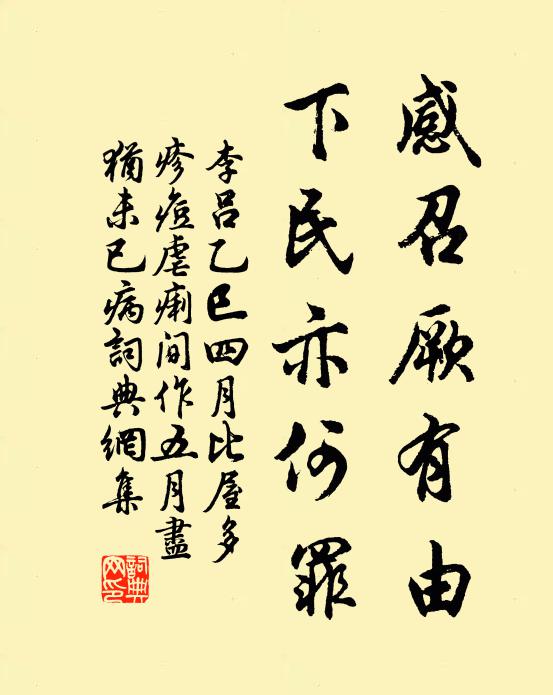 感召厥有由
下民亦何罪
李吕乙巳四月比屋多
疹痘虐痢间作五月盡
猶未已病詞典網集
詞典网印